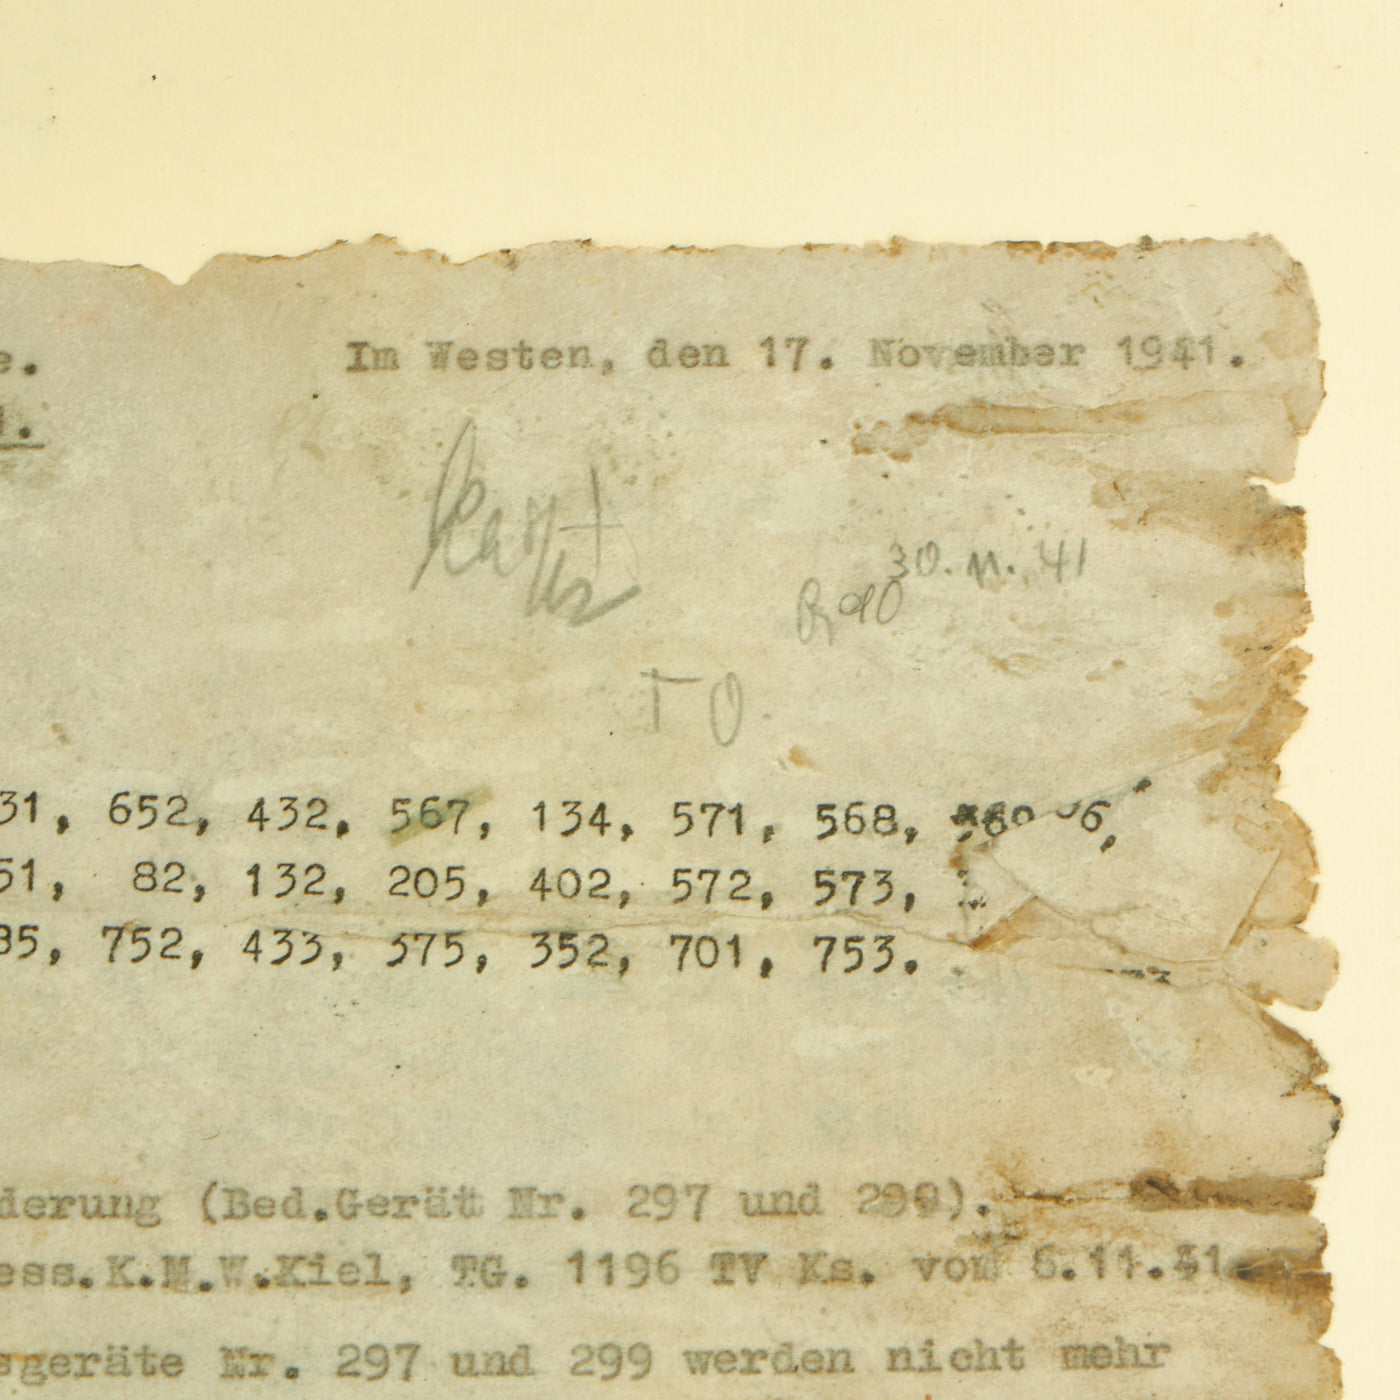 e. Im Westen, den 17. November 1941.
30. 11. 41
TO
31, 652, 432, 567, 134, 571, 568,
51, 82, 132, 205, 402, 572, 573,
85, 752, 433, 375, 352, 701, 753.
derung (Bed.Gerät Nr. 297 und 299).
ess.K.M.W.Kiel, TG. 1196 TV Ks. vom 6.11.41.
sgeräte Nr. 297 und 299 werden nicht mehr